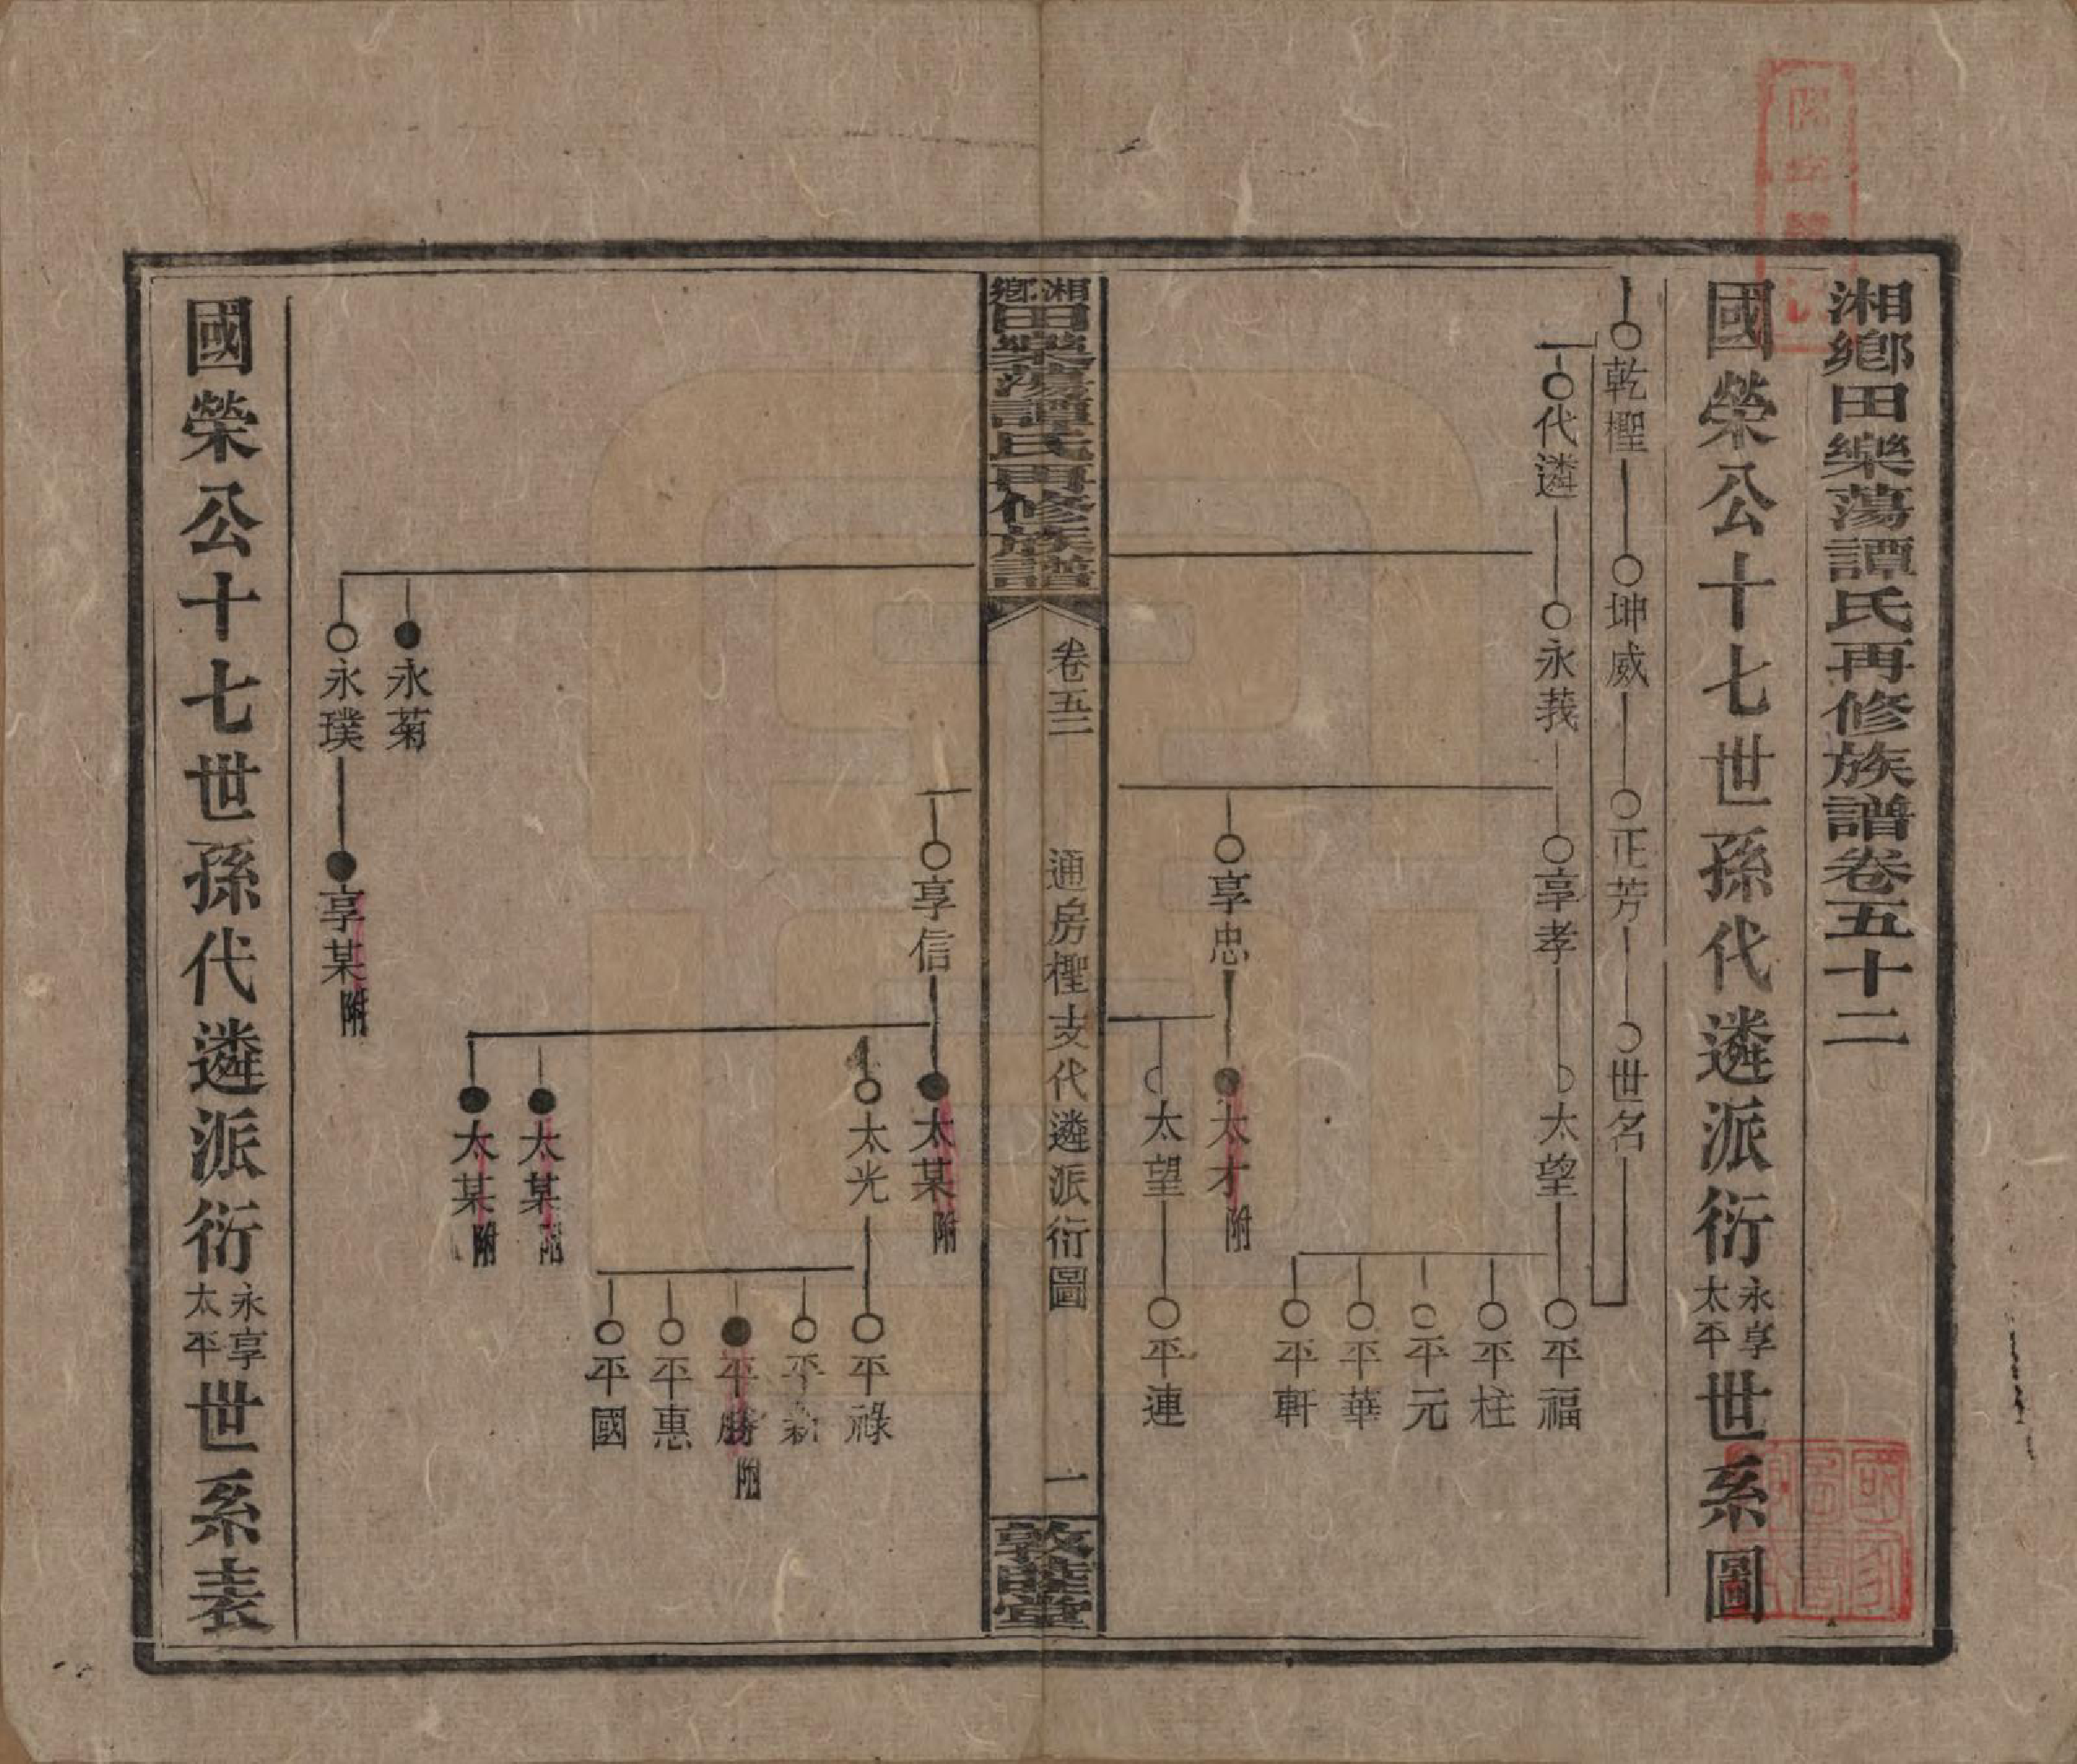 湘鄕田樂蕩譚氏再修族譜卷五十二
國榮公十七世孫代遴派衍永享太平世系圖
乾檉
坤威
正芳
世名
代遴
永莪
享孝
太望
平福
平柱
平元
平華
平軒
享忠
太才附
太望
平連
湘鄕田樂蕩譚氏再修族譜
卷五二
通房檉支代遴派衍圖
一
敦睦堂
享信
太某附
太光
平祿
平新
平勝附
平惠
平國
太某附
太某附
永菊
永璞
享某附
國榮公十七世孫代遴派衍永享太平世系表